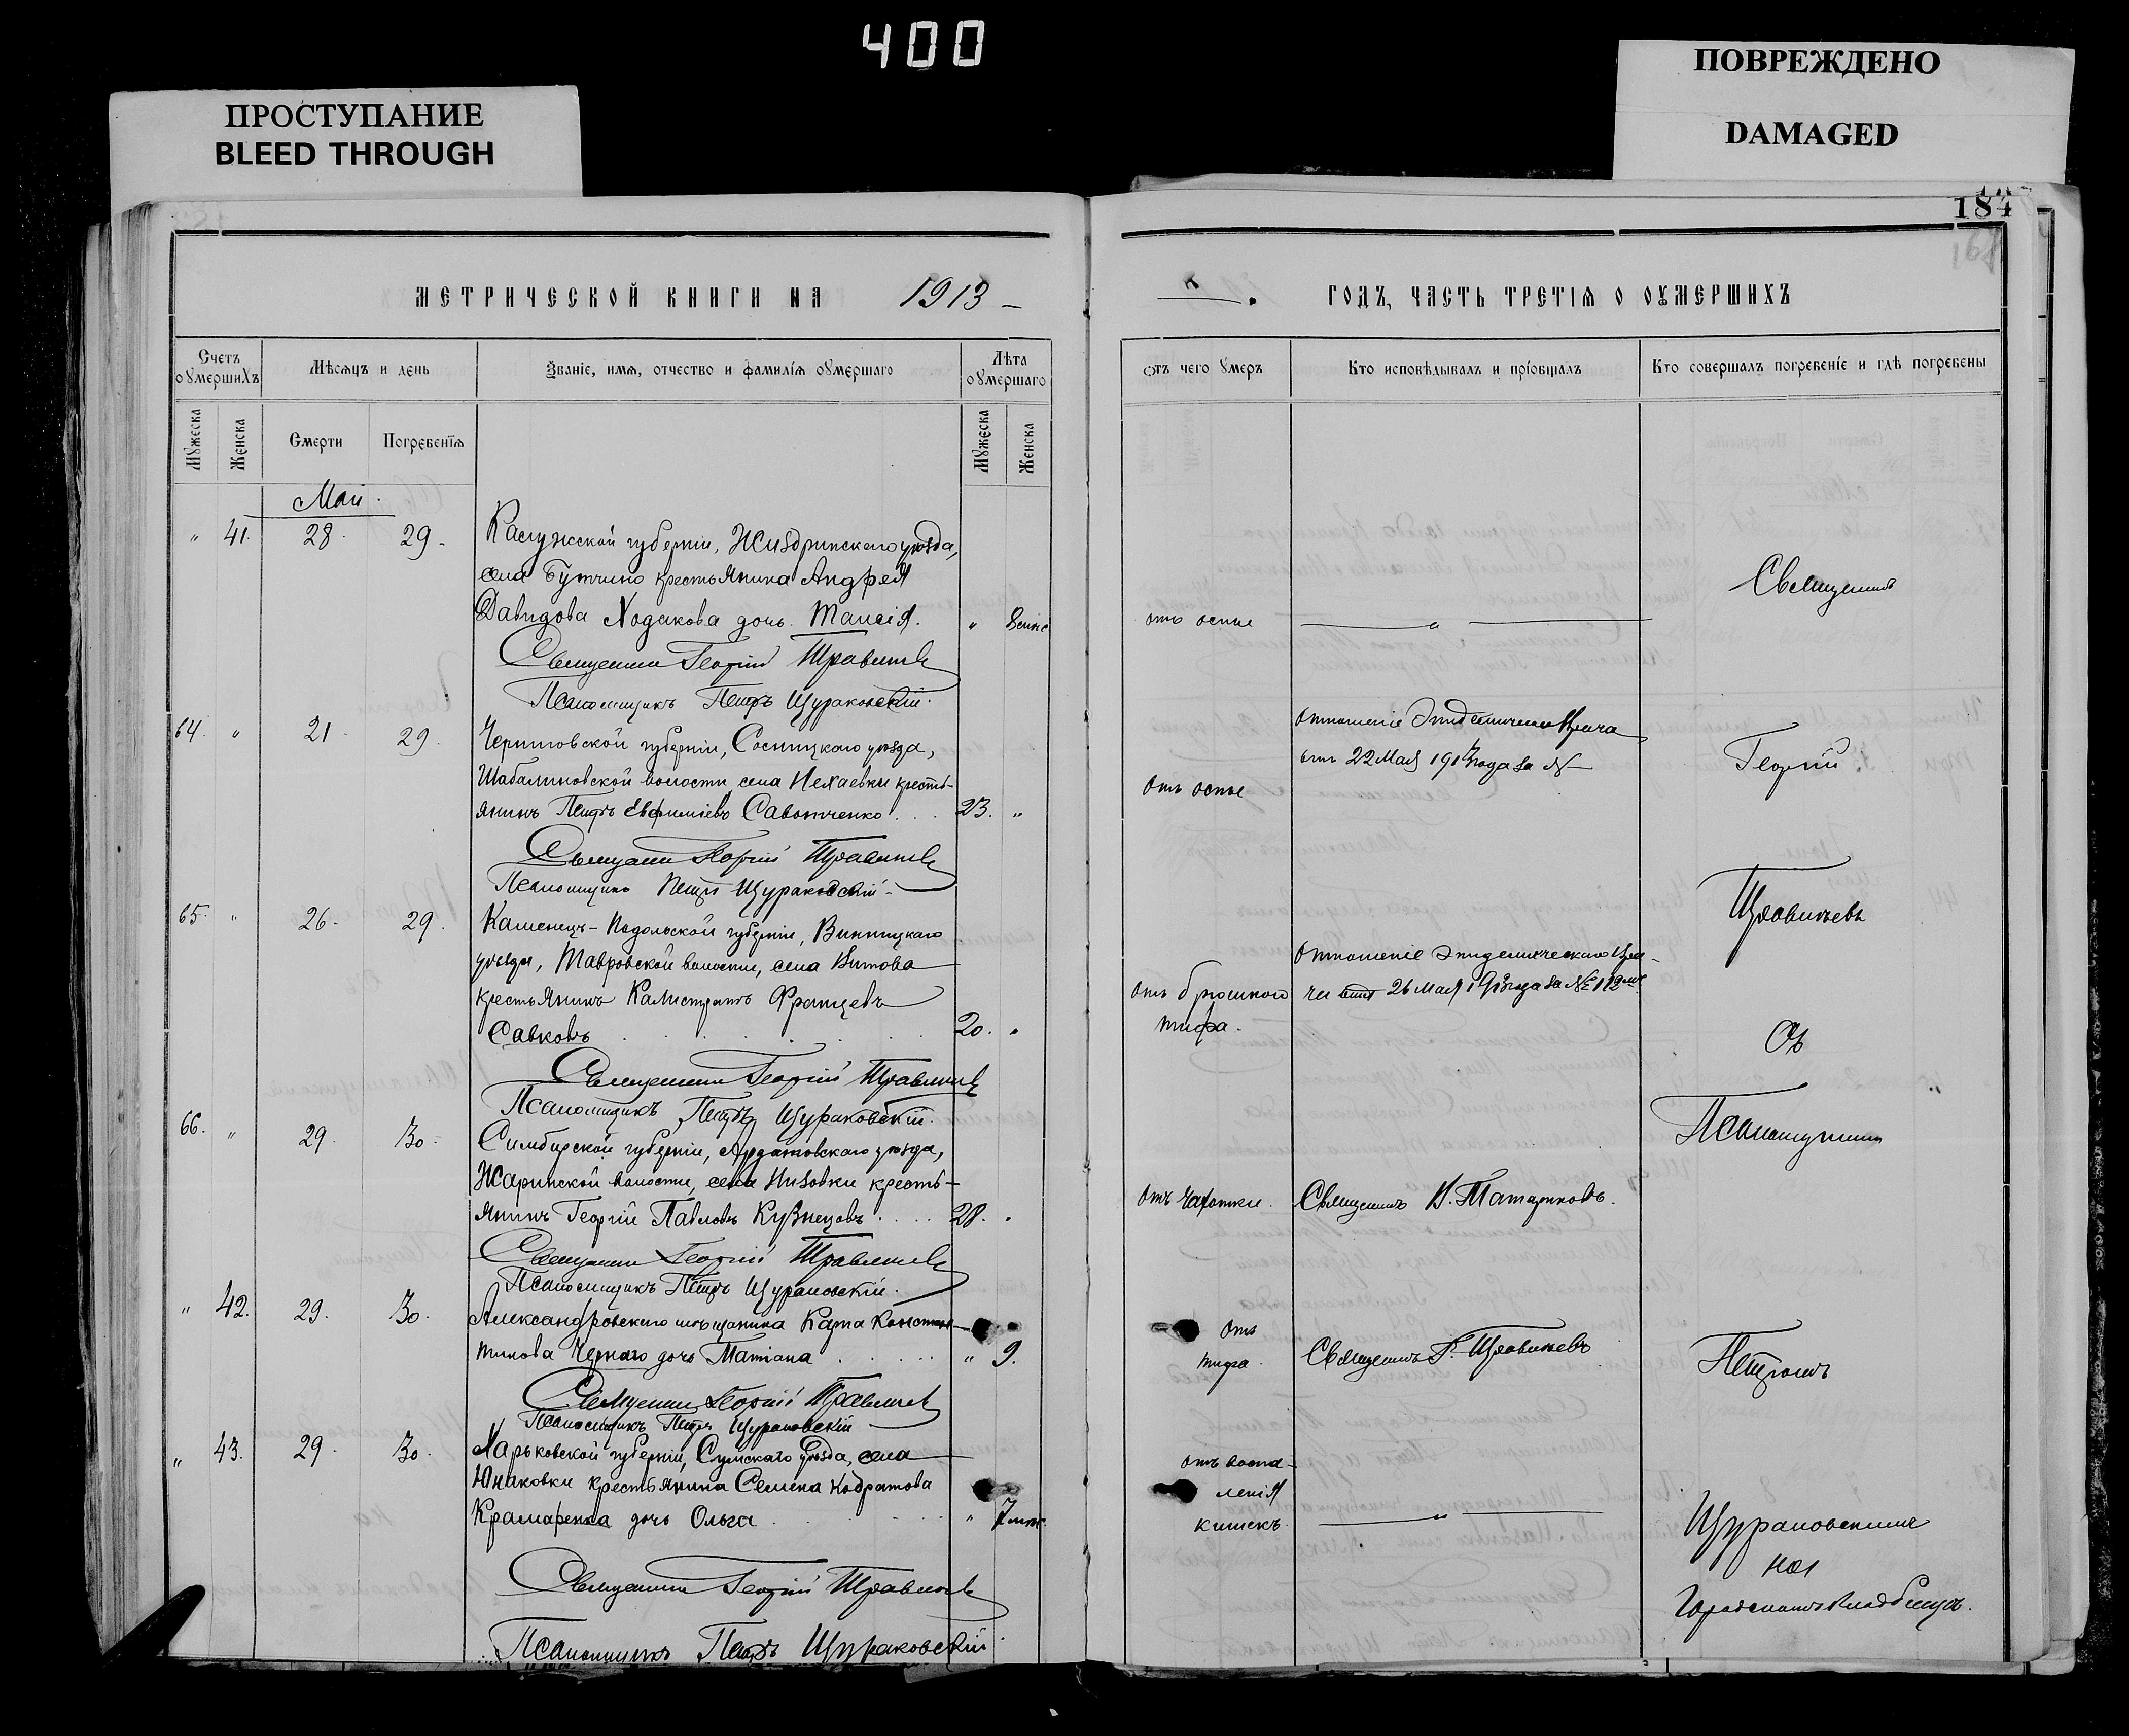 400
ПРОСТУПАНИЕ
BLEED THROUGH
ПОВРЕЖДЕНО
DAMAGED
184
МЕТРИЧЕСКОЙ КНИГИ НА 1913
ГОДЪ, ЧАСТЬ ТРЕТІЯ О ОУМЕРШИХЪ
Счетъ оумершихъ
Мѣсяцъ и день
Званіе, имя, отчество и фамилія оумершаго
Лѣта оумершаго
отъ чего умеръ
Кто исповѣдывалъ и пріобщалъ
Кто совершалъ погребеніе и гдѣ погребены
Мужеска
Женска
Смерти
Погребенія
Мужеска
Женска
Май
" 41. 28 29 Калужской губерніи, Жиздринскаго уѣзда,
села Бутчино крестьянина Андрея
Давидова Ходакова дочь Таисія. " 8 отъ оспы "
Священникъ Георгій
Псаломщикъ Петръ Щураковскій.
64. " 21 29 Черниговской губерніи, Сосницкаго уѣзда,
Шабалиновской волости, села Нехаевки кресть-
янинъ Петръ Евфиміевъ Савотченко 23. " отъ оспы
отношеніе Эпидемическ Врача
отъ 22 Мая 1913 года за №
Священникъ Георгій
Псаломщикъ Петръ Щураковскій
65. " 26 29 Каменецъ-Подольской губерніи, Винницкаго
уѣзда, Тавровской волости, села
крестьянинъ Калистратъ Францевъ
Савковъ 20. " отъ брюшного тифа
Отношеніе эпидемическаго Вра-
ча 26 Мая 1913 года за № 112
Священникъ Георгій
Псаломщикъ Петръ Щураковскій.
66. " 29 30 Симбирской губерніи, Ардатовскаго уѣзда,
Жаринской волости, села Низовки кресть-
янинъ Георгій Павловъ Кузнецовъ 28. " отъ чахотки. Священникъ В. Татариновъ.
Священникъ Георгій
Псаломщикъ Петръ Щураковскій.
" 42. 29. 30. Александровскаго мѣщанина Карпа Констан-
тинова Чернаго дочь Татіана " 9. отъ тифа. Священникъ Г.
Священникъ Георгій
Псаломщикъ Петръ Щураковскій
" 43. 29 30. Харьковской губерніи, Сумскаго уѣзда, села
Юнаковки крестьянина Семена Кодратова
Крамаренка дочь Ольга " 7 отъ воспа-
ленія
кишекъ. "
Священникъ Георгій
Псаломщикъ Петръ Щураковскій.
Священникъ
Георгій
Съ
Псаломщикомъ
Петромъ
Щураковскимъ
на
Городскомъ кладбищѣ.